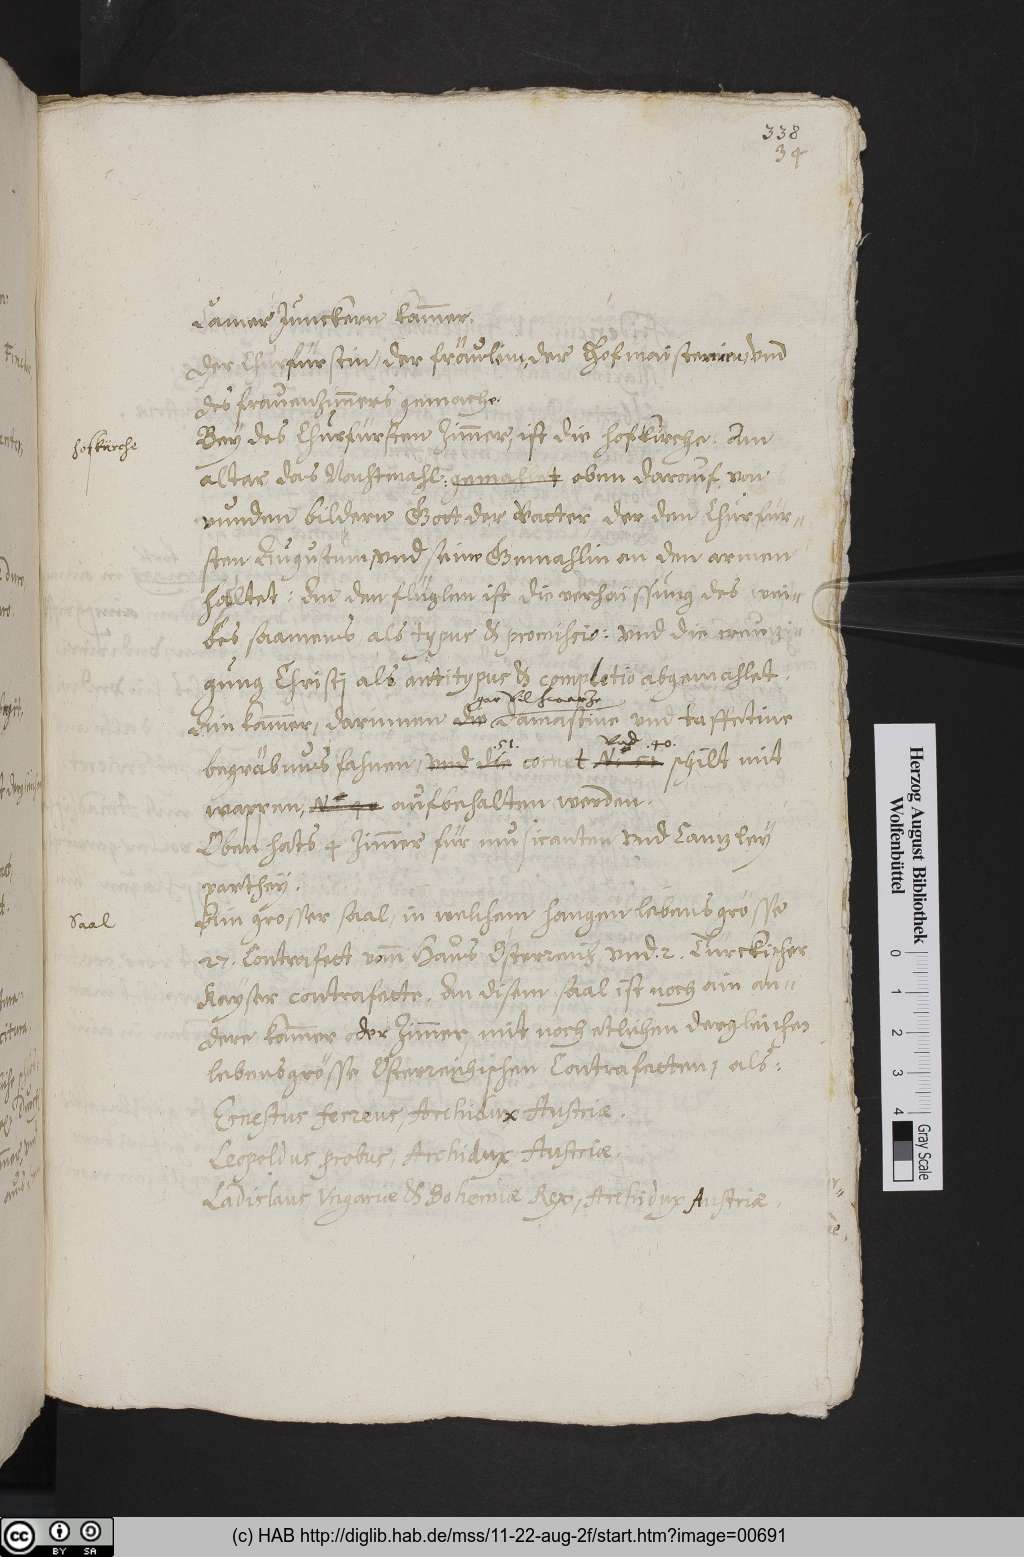 338
34
Camer Junckern kam̄er.
Der Churfürstin, der fräwlin, der Hofmaisterin, vnd
des frauenzim̄ers gemache.
hofkürche
Bey des Churfürsten Zim̄er, ist die hofkürche: Am
altar das Nachtmahl: gemahlet oben darauf von
runden bildern Gott der Vatter, der den Churfür-
sten Augustum, vnd seine Gemahlin an den armen
haltet: An den flüglen ist die verhaissung des wei-
bes saamens als typus & promissio: vnd die creuzi-
gung Christi als antitypus & completio abgemahlet.
gar vil schwartze
Ein kam̄er, darinnen die Damastine vnd taffetine
.51. vnd .40.
begräbnus fahnen, vnd die cornet N. 51 schilt mit
wappen, N. 40 aufbehalten werden.
Oben hats 4 Zim̄er für musicanten vnd Cantzley
parthey.
Saal
Ain grosser saal, in welchem hangen lebensgrösse
27. Contrafett vom̄ Haus Österreich, vnd .2. Türckischer
Kayser contrafette. An disem saal ist noch ain an-
dere kam̄er oder Zim̄er, mit noch etlichen dergleichen
lebensgrösse Österreichischen Contrafetten, als:
Ernestus ferreus, Archidux Austriæ.
Leopoldus probus, Archidux Austriæ.
Ladislaus Vngariæ & Bohemiæ Rex, Archidux Austriæ.
Herzog August Bibliothek
Wolfenbüttel
0 1 2 3 4
Gray Scale
cc BY SA
(c) HAB http://diglib.hab.de/mss/11-22-aug-2f/start.htm?image=00691